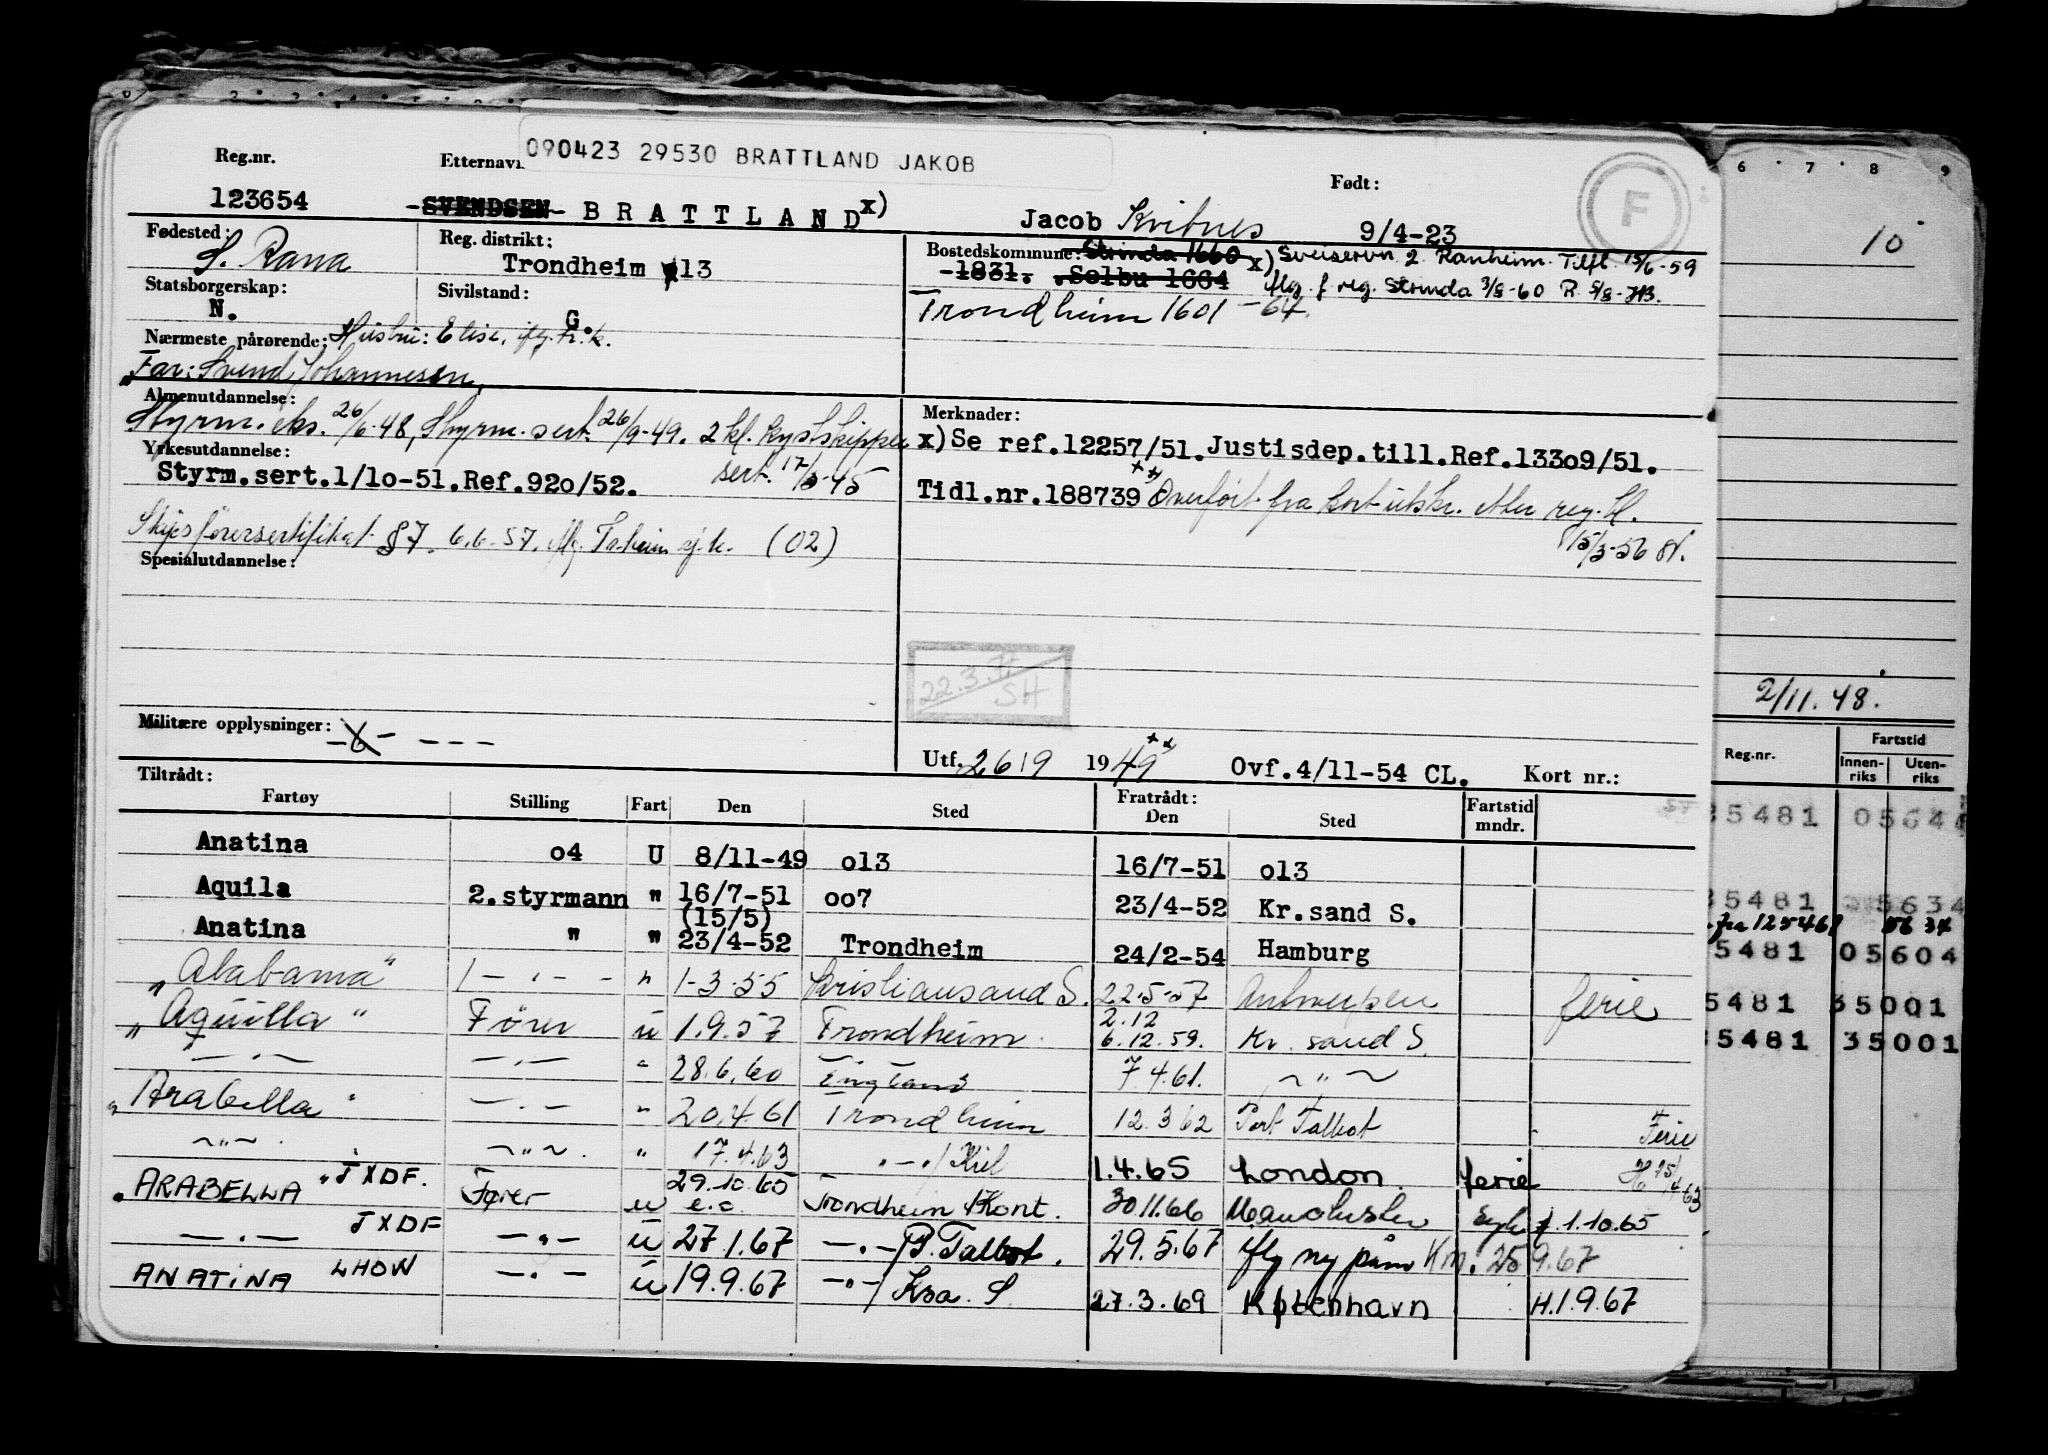 090423 29530 BRATTLAND JAKOB
Reg.nr. Etternavn Født: F
123654 -SVENDSEN- BRATTLAND x) Jacob Kvitnes 9/4-23
Fødested: Reg. distrikt: Bostedskommune: Strinda 1660 x) Sveiservn. 2. Ranheim. Tilfl. 15/6-59
S. Rana Trondheim 013 -1831. Selbu 1664 iflg. f. reg. Strinda 3/8-60 R. 5/8-
Statsborgerskap: Sivilstand: Trondheim 1601 -64.
N. G.
Nærmeste pårørende: Hustru: Elise, iflg.
Far: Svend Johannesen,
Almenutdannelse: Merknader:
Styrm. eks. 26/6-48, Styrm. sert. 26/9-49. 2 kl. kystskipper x)Se ref.12257/51.Justisdep.till.Ref.13309/51.
Yrkesutdannelse: sert. 17/3-45
Styrm.sert.1/10-51.Ref.920/52. Tidl.nr.188739 xx) Overført fra kort utskr. etter reg. bl.
Skipsførersertifikat §7. 6.6-57. (02) 15/3-56
Spesialutdannelse:
22.3.71
SH
Militære opplysninger:
Utf. 2619 1949 xx Ovf.4/11-54 CL. Kort nr.:
Tiltrådt: Fratrådt:
Fartøy Stilling Fart Den Sted Den Sted Fartstid mndr.
Anatina o4 U 8/11-49 o13 16/7-51 o13
Aquila 2.styrmann " 16/7-51 oo7 23/4-52 Kr.sand S.
(15/5)
Anatina " " 23/4-52 Trondheim 24/2-54 Hamburg
"Alabama" 1 - . - - " 1-3-55 Kristiansand S. 22-5-57 Antwerpen ferie
2.12
"Aquilla" Fører u 1.9.57 Trondheim 6.12.59. Kr. sand S.
- . - - . - " 28.6.60 England 7.4.61. ~ " ~
"Arabella" - . - " 20.4.61 Trondheim 12.3.62 Port Talbot Ferie
~ " ~ ~ " ~ " 17.4.63 - . -/Kiel 1.4.65 London. ferie H 15/4 63
"ARABELLA" JXDF. Fører u 29.10.65 Trondheim /Kont. 30.11.66 Manchester Syk f. 1.10.65
- . - JXDF - . - u 27.1.67 - . -/P. Talbot. 29.5.67 iflg ny påm Km. 25.9.67
ANATINA LHOW - . - u 19.9.67 - . -/Kra. S. 27.3.69 København H.1.9.67
6 7 8 9
10
2/11.48.
Reg.nr. Fartstid
Innen-riks Uten-riks
5481 0564
5481 5634
125461 56 34
5481 05604
5481 35001
5481 35001